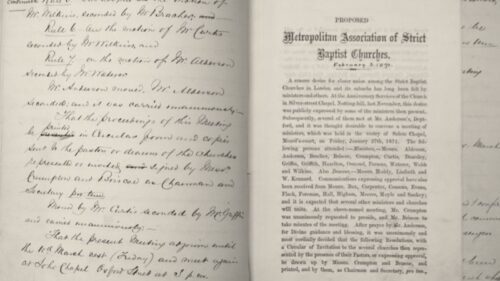 on the motion of
Mr Wilkins, seconded by Mr Bracher, and
Rule 6. on the motion of Mr Curtis
seconded by Mr Wilkins, and
Rule 7. on the motion of Mr Alderson
seconded by Mr
Mr Anderson moved, Mr Alderson
seconded, and it was carried unanimously—
That the proceedings of this Meeting
be printed in Circular form and copies
sent to the pastor or deacons of the Churches
represented or invited, signed by Messrs
Crumpton and Briscoe as Chairman and
Secretary pro tem
Moved by Mr Curtis seconded by Mr Griffith
and carried unanimously—
That the present Meeting adjourn until
the 10th March next (Friday) and meet again
at John Chapel Oxford Street at 3 p.m.
PROPOSED
Metropolitan Association of Strict
Baptist Churches.
February 3, 1871.
A sincere desire for closer union among the Strict Baptist
Churches in London and its suburbs has long been felt
by ministers and others. At the Anniversary Services of the Church
in Silver-street Chapel, Notting hill, last November, this desire
was publicly expressed by some of the ministers then present.
Subsequently, several of them met at Mr. Anderson's, Dept-
ford, and it was thought desirable to convene a meeting
of ministers, which was held in the vestry of Salem Chapel,
Meard's-court, on Friday, January 27th, 1871. The fol-
lowing persons attended:—Ministers.—Messrs. Alderson,
Anderson, Bracher, Briscoe, Crumpton, Curtis, Dearsley,
Griffin, Griffith, Hazelton, Osmond, Parsons, Waterer, Webb
and Wilkins. Also Deacons.—Messrs. Moldy, Lindsell and
W. Kennard. Communications expressing approval have also
been received from Messrs. Box, Carpenter, Cozens, Evans,
Flack, Foreman, Hall, Higham, Meeres, Moyle and Sankey;
and it is expected that several other ministers and churches
will unite. At the above-named meeting, Mr. Crumpton
was unanimously requested to preside, and Mr. Briscoe to
take minutes of the meeting. After prayer by Mr. Anderson,
for Divine guidance and blessing, it was unanimously and
most cordially decided that the following Resolutions, with
a Circular of Invitation to the several churches then repre-
sented by the presence of their Pastors, or expressing approval,
be drawn up by Messrs. Crumpton and Briscoe, and
printed, and by them, as Chairman and Secretary, pro tem.,